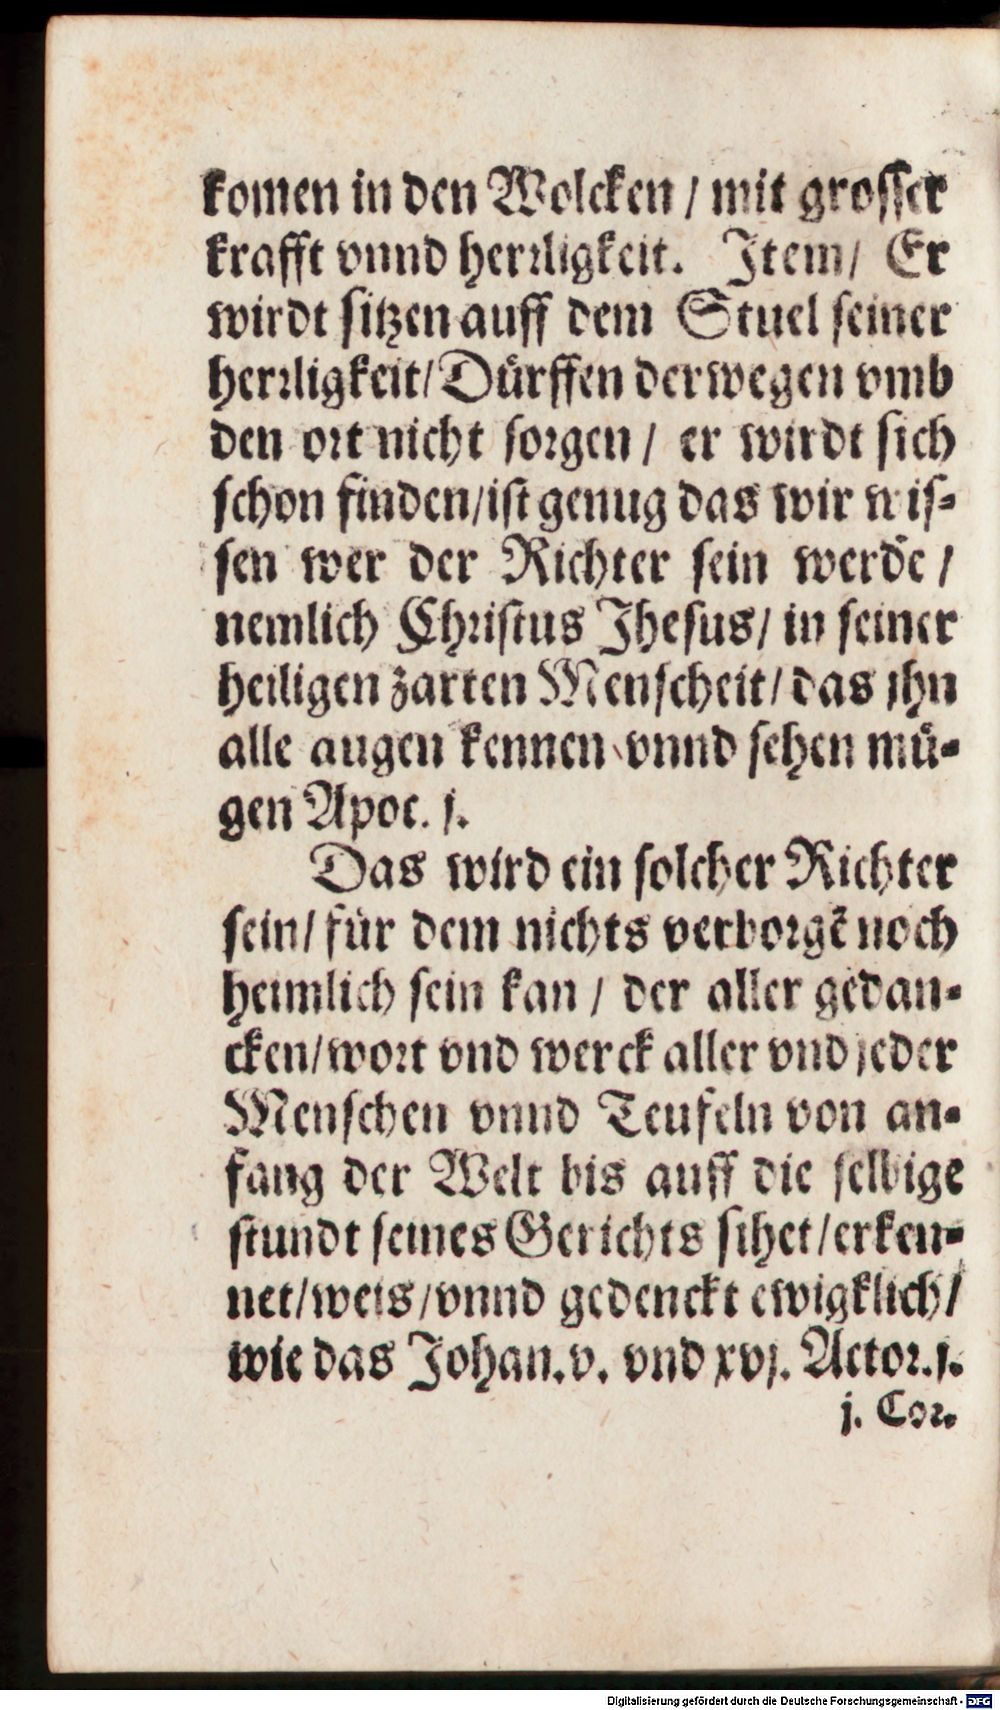 komen in den Wolcken / mit grosser
krafft vnnd herꝛligkeit. Item/ Er
wirdt sitzen auff dem Stuel seiner
herꝛligkeit/Dürffen derwegen vmb
den oꝛt nicht soꝛgen / er wirdt sich
schon finden/ist genug das wir wis-
sen wer der Richter sein werde /
nemlich Chꝛistus Jhesus/ in seiner
heiligen zarten Menscheit/das jhn
alle augen kennen vnnd sehen mü-
gen Apoc. j.
Das wird ein solcher Richter
sein/für dem nichts verboꝛgẽ noch
heimlich sein kan / der aller gedan-
cken/woꝛt vnd werck aller vnd jeder
Menschen vnnd Teufeln von an-
fang der Welt bis auff die selbige
stundt seines Gerichts sihet/erken-
net/weis/vnnd gedenckt ewigklich/
wie das Johan.v. vnd xvj. Actoꝛ.j.
j. Coꝛ.
Digitalisierung gefördert durch die Deutsche Forschungsgemeinschaft - DFG